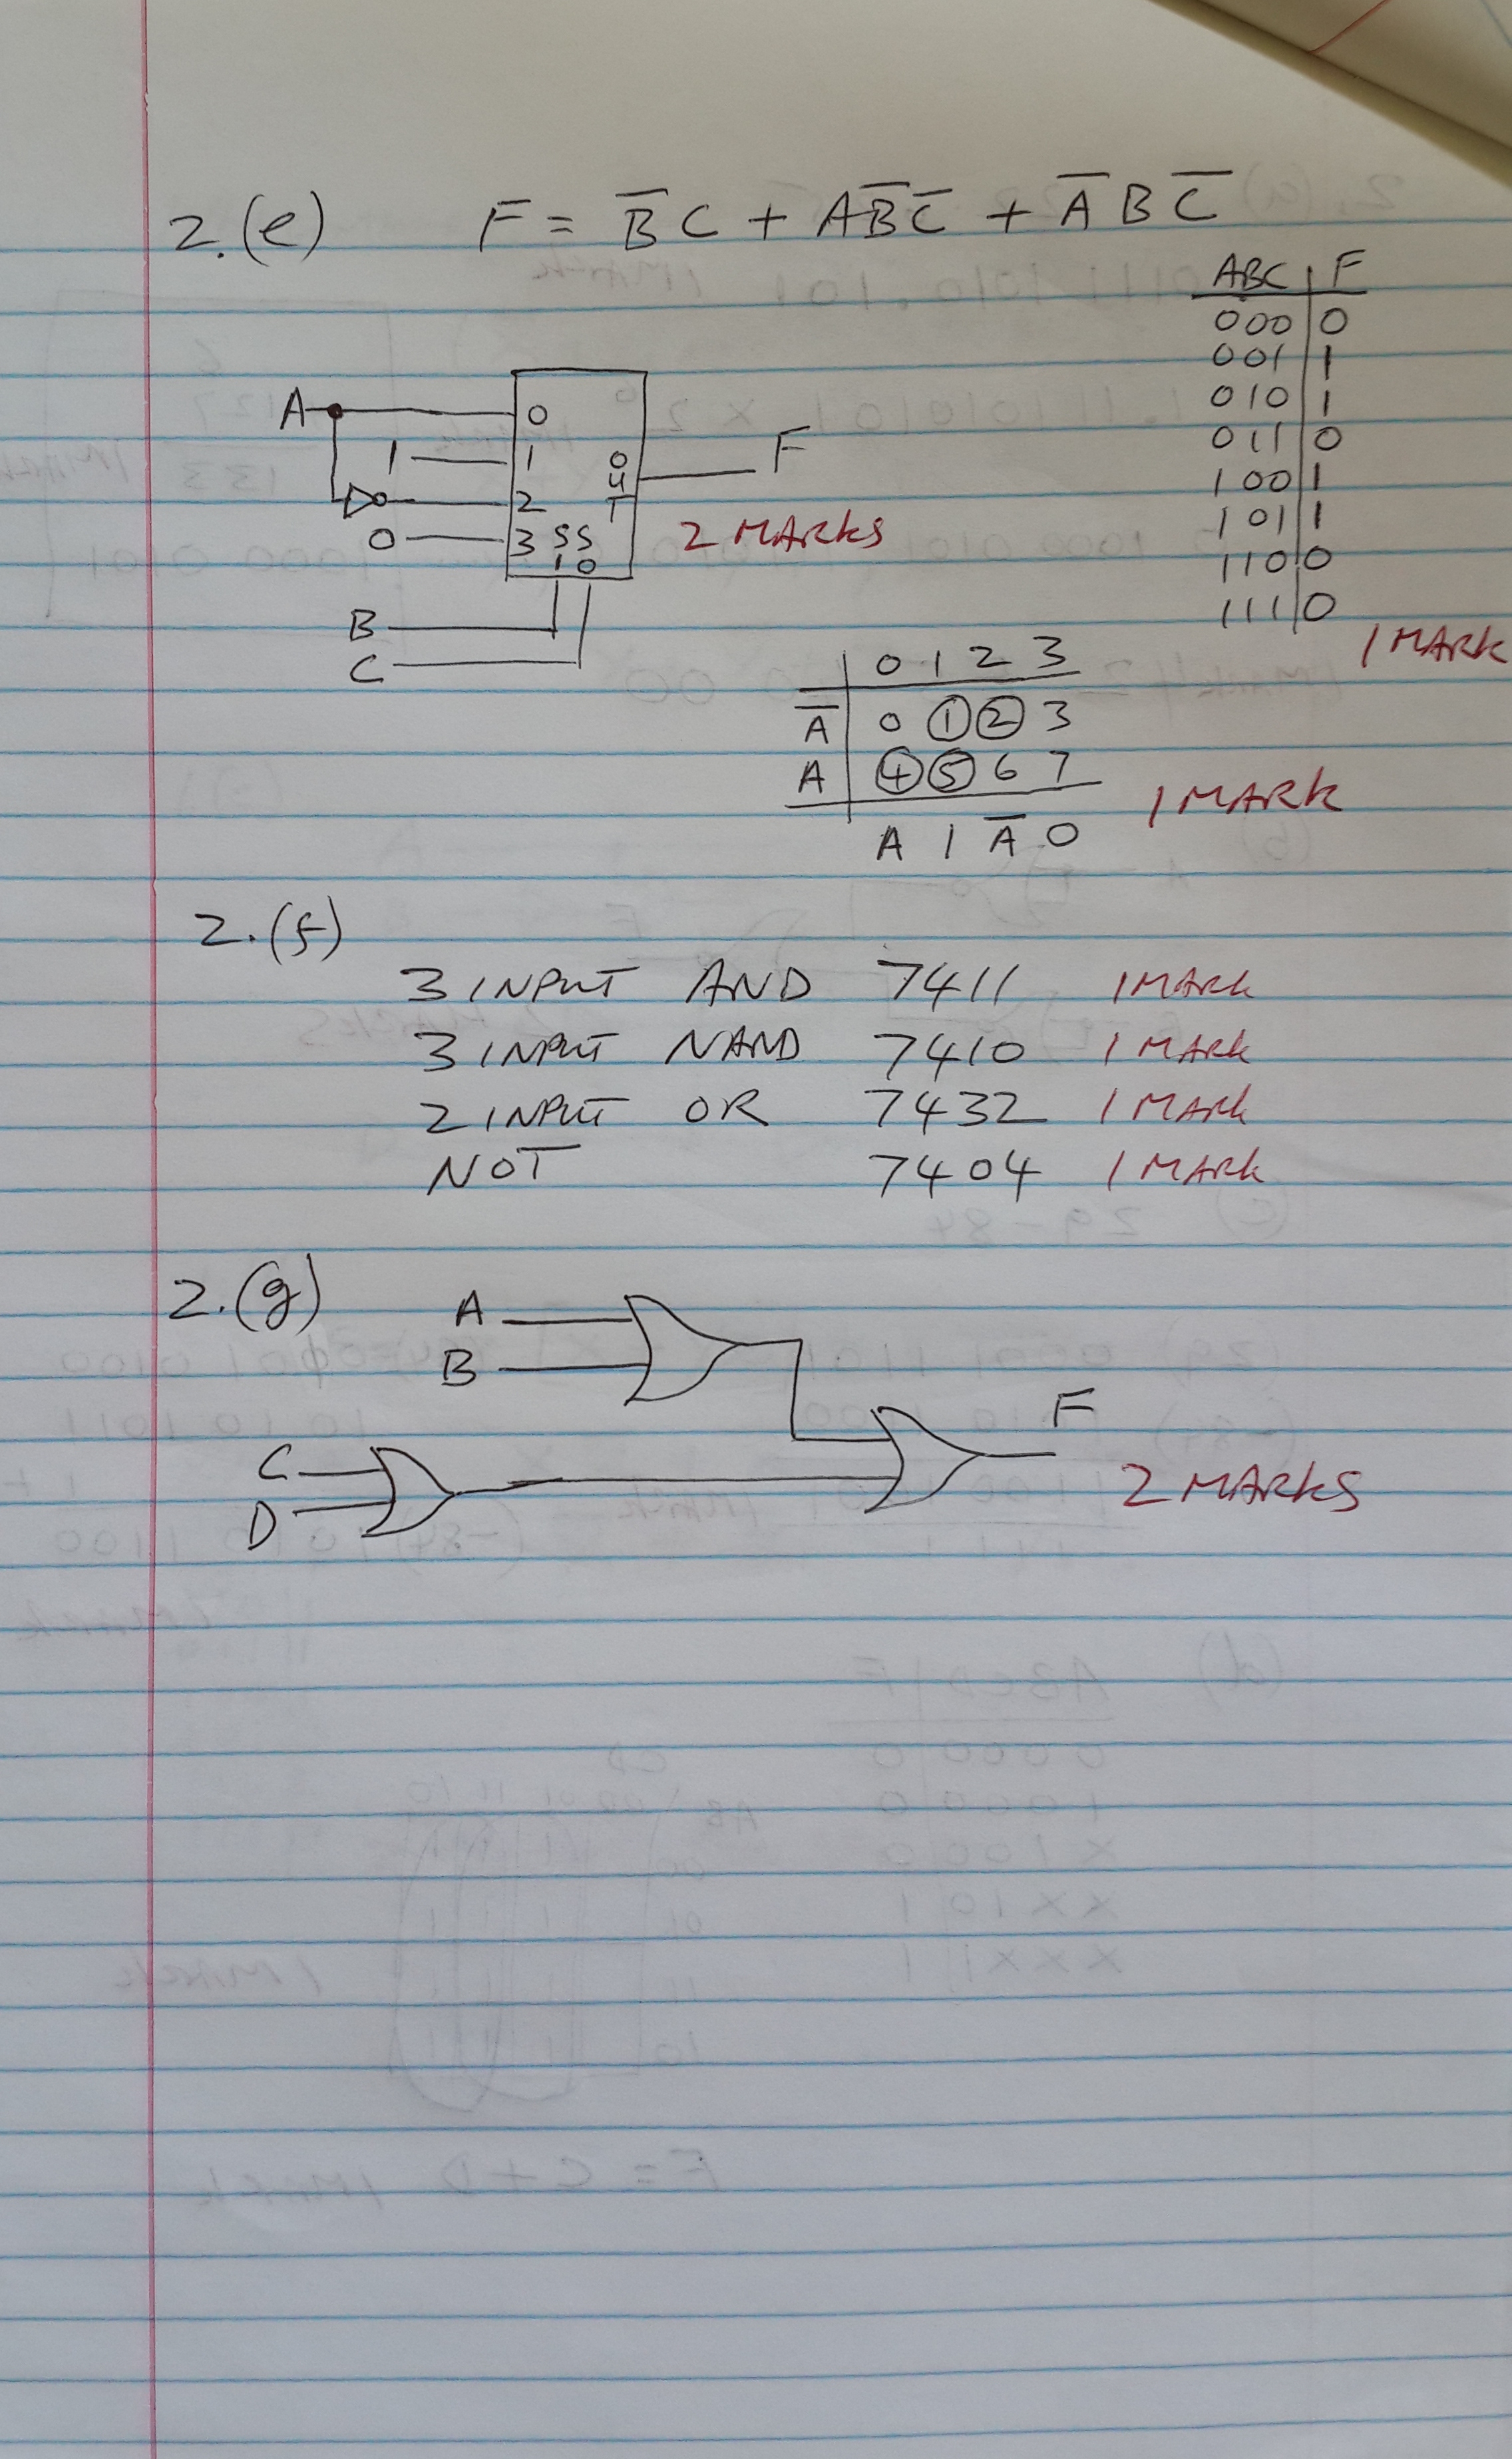 2.(e) F = B̅C + AB̅C̅ + A̅BC̅
ABC F
000 0
001 1
010 1
011 0
100 1
101 1
110 0
111 0
1 MARK
A 0
1 1 OUT F
2
0 3 SS
10
2 MARKS
B
C
0 1 2 3
A̅ 0 1 2 3
A 4 5 6 7
A 1 A̅ 0
1 MARK
2.(f)
3 INPUT AND 7411 1 MARK
3 INPUT NAND 7410 1 MARK
2 INPUT OR 7432 1 MARK
NOT 7404 1 MARK
2.(g) A
B
F
C
D
2 MARKS